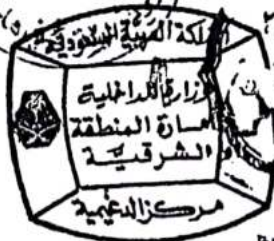 المملكة العربية السعودية
وزارة الداخلية
امارة المنطقة
الشرقية
مركز الدغيمية